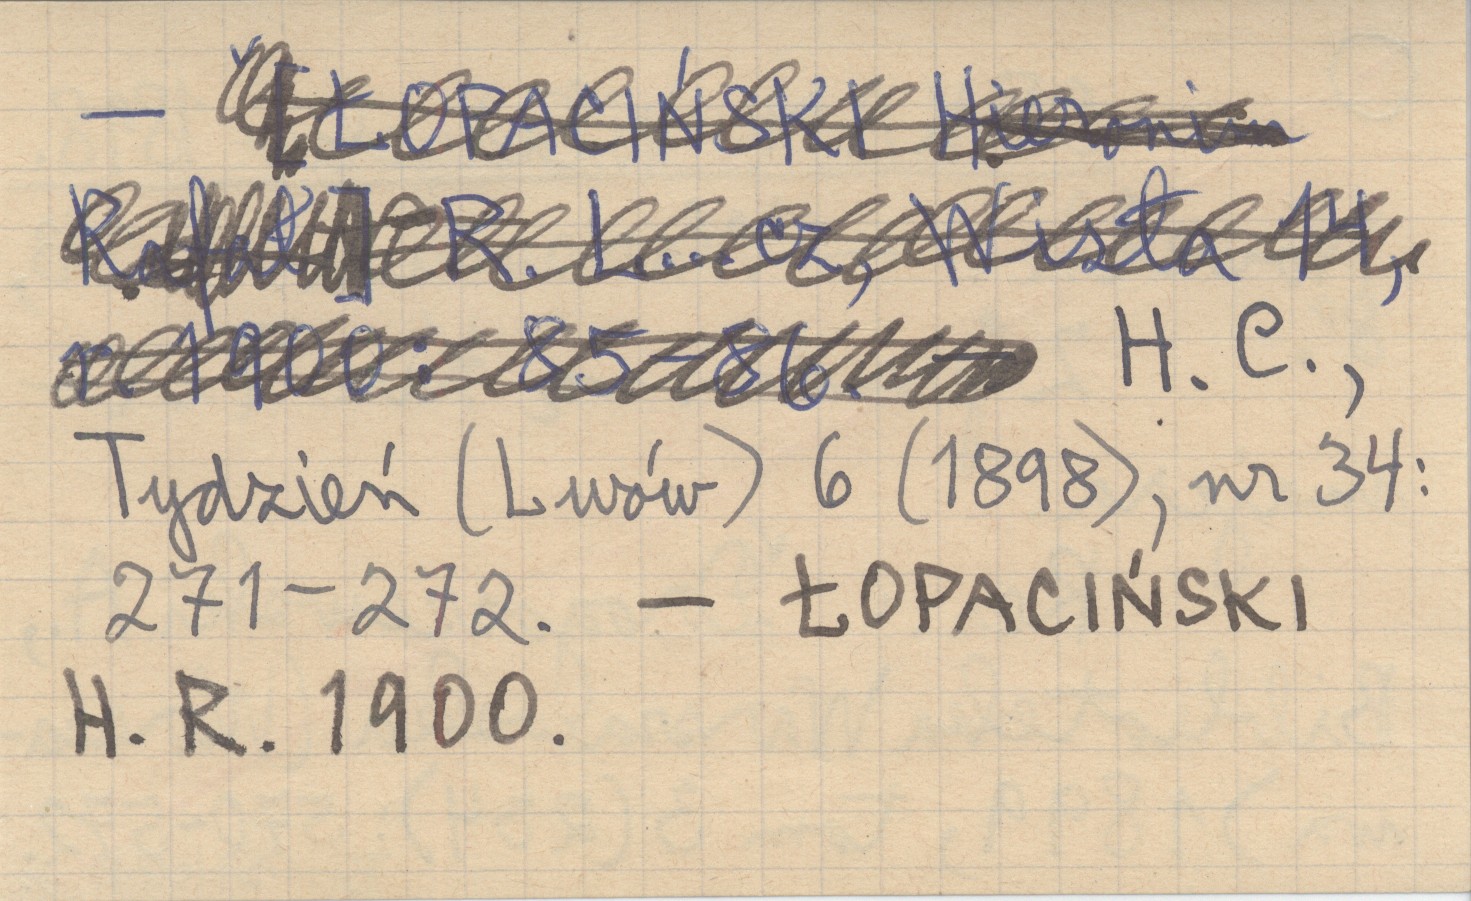 — [ŁOPACIŃSKI Hieronim
Rafał] R. L...cz, Wisła 14,
r. 1900: 85-86. — H. C.,
Tydzień (Lwów) 6 (1898), nr 34:
271-272. — ŁOPACIŃSKI
H. R. 1900.